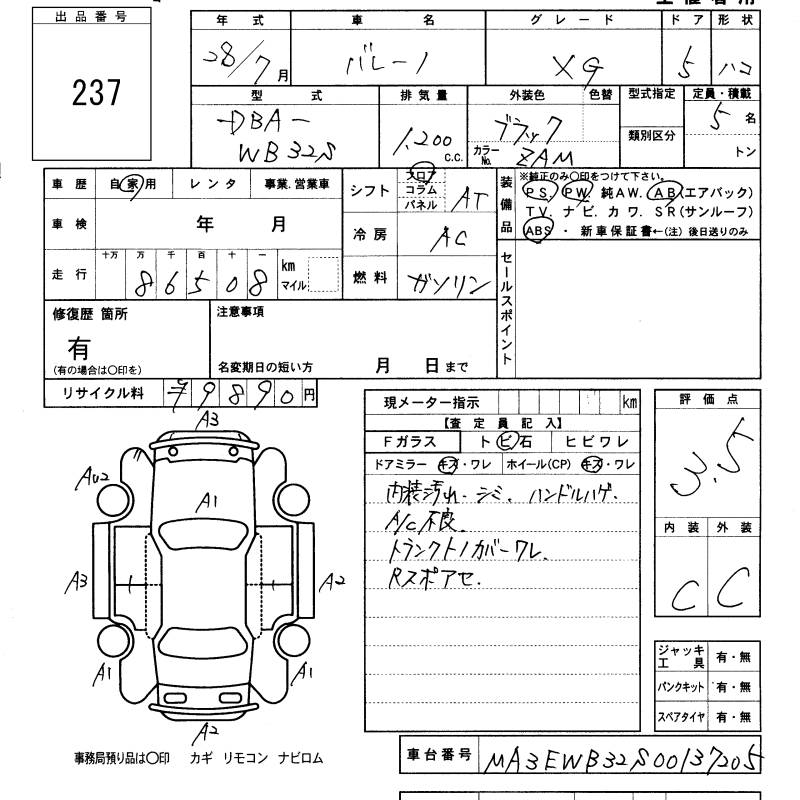 出品番号
237
年式 車名 グレード ドア 形状
28/7月 バレーノ XG 5 ハコ
型式 排気量 外装色 色替 型式指定 定員・積載
DBA- 1,200 c.c. ブラック 5名
類別区分
WB32S カラーNo. ZAM トン
車歴 自家用 レンタ 事業.営業車
シフト フロア コラム パネル AT
装備品 ※純正のみ〇印をつけて下さい。
PS. PW. 純AW. AB(エアバック)
TV. ナビ. カワ. SR(サンルーフ)
ABS・新車保証書←(注)後日送りのみ
車検 年 月
冷房 AC
走行 十万 万 千 百 十 一
86508 km マイル
燃料 ガソリン
セールスポイント
修復歴 箇所
有
(有の場合は〇印を)
注意事項
名変期日の短い方 月 日まで
リサイクル料 ¥9890円
現メーター指示 km
【査定員記入】
Fガラス トビ石 ヒビワレ
ドアミラー キズ・ワレ ホイール(CP) キズ・ワレ
内装汚れ. シミ. ハンドルハゲ.
A/C不良.
トランクトノカバーワレ.
Rスポアセ.
評価点
3.5
内装 外装
C C
A3
AU2
A1
A3
A2
A1
A1
A2
ジャッキ工具 有・無
パンクキット 有・無
スペアタイヤ 有・無
事務局預り品は〇印 カギ リモコン ナビロム
車台番号 MA3EWB32S00137205